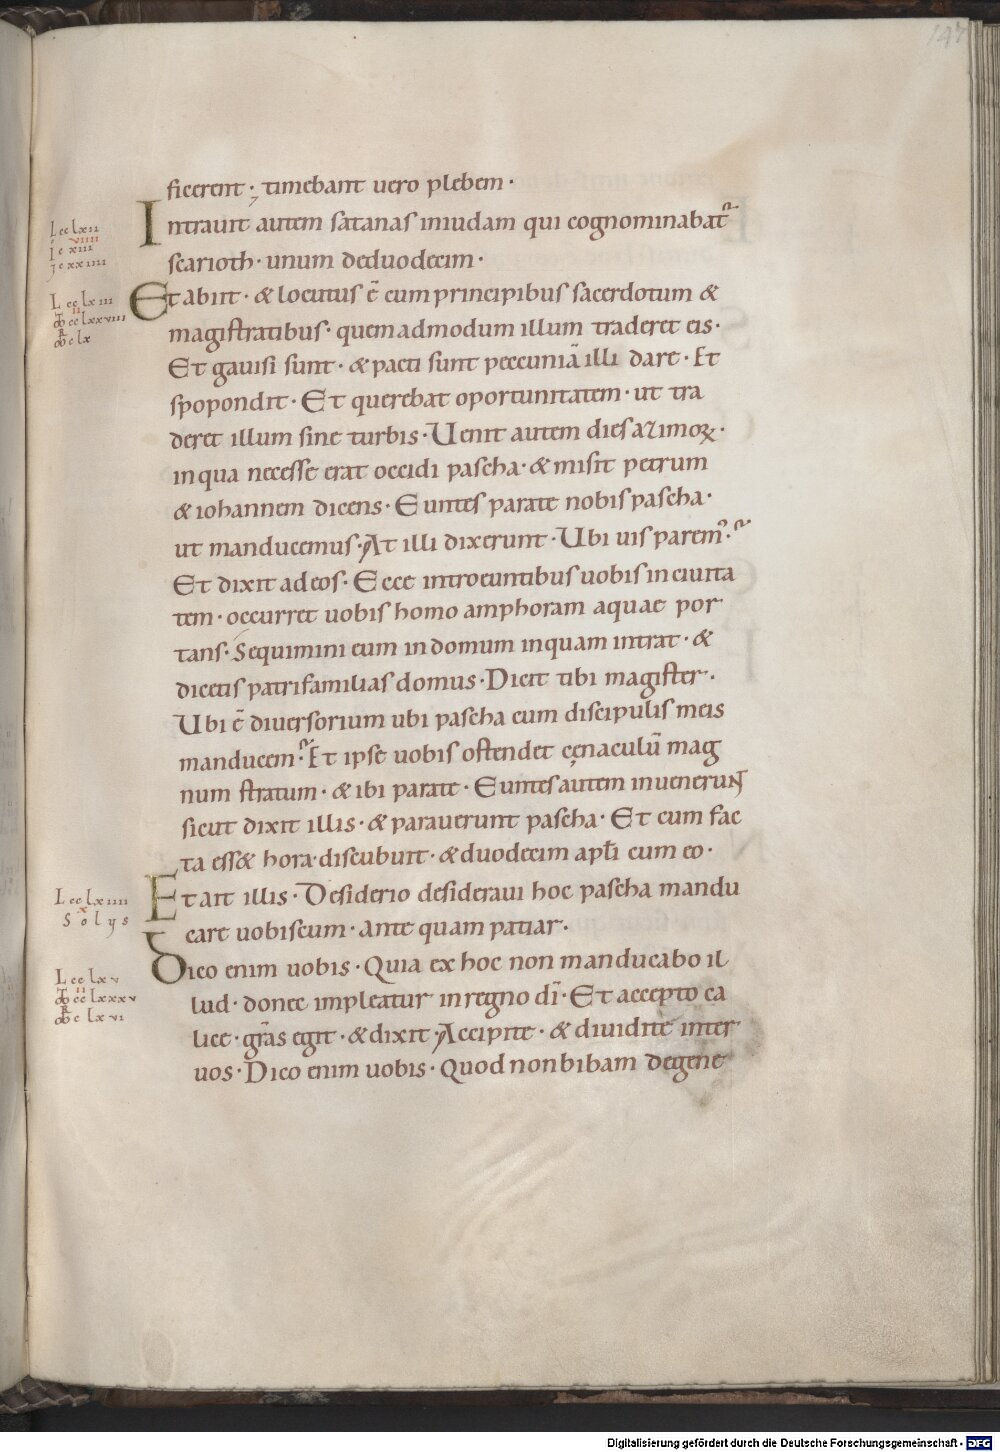 147
ficerent· timebant uero plebem·
Intrauit autem satanas iniudam qui cognominabat᷑
scarioth· unum deduodecim·
Et abiit· & locutus ē cum principibus sacerdotum &
magistratibus· quemadmodum illum traderet eis·
Et gauisi sunt· & pacti sunt peccuniā illi dare· Et
spopondit· Et querebat oportunitatem· ut tra
deret illum sine turbis· Uenit autem dies azimoꝝ·
in qua necesse erat occidi pascha· & misit petrum
& iohannem dicens· Euntes parate nobis pascha·
ut manducemus· At illi dixerunt· Ubi uis paremꝰ·
Et dixit ad eos· Ecce introeuntibus uobis in ciuita
tem· occurret uobis homo amphoram aquae por
tans· Sequimini eum in domum inquam intrat· &
dicetis patrifamilias domus· Dicit tibi magister·
Ubi ē diuersorium ubi pascha cum discipulis meis
manducem· Et ipse uobis ostendet cęnaculū mag
num stratum· & ibi parate· Euntes autem inuenerunt
sicut dixit illis· & parauerunt pascha· Et cum fac
ta ess& hora· discubuit· & duodecim apłi cum eo·
Et ait illis· Desiderio desideraui hoc pascha mandu
care uobiscum· ante quam patiar·
Dico enim uobis· Quia ex hoc non manducabo il
lud· donec impleatur in regno dī· Et accepto ca
lice· gr̄as egit· & dixit· Accipite· & diuidite inter
uos· Dico enim uobis· Quod non bibam degene
L cc lxii
viiii
i c xiii
L cc lxiii
ii
cc lxxviii
c lx
L cc lxiiii
x
Solus
L cc lxv
ii
cc lxxxv
c lxvi
Digitalisierung gefördert durch die Deutsche Forschungsgemeinschaft - DFG